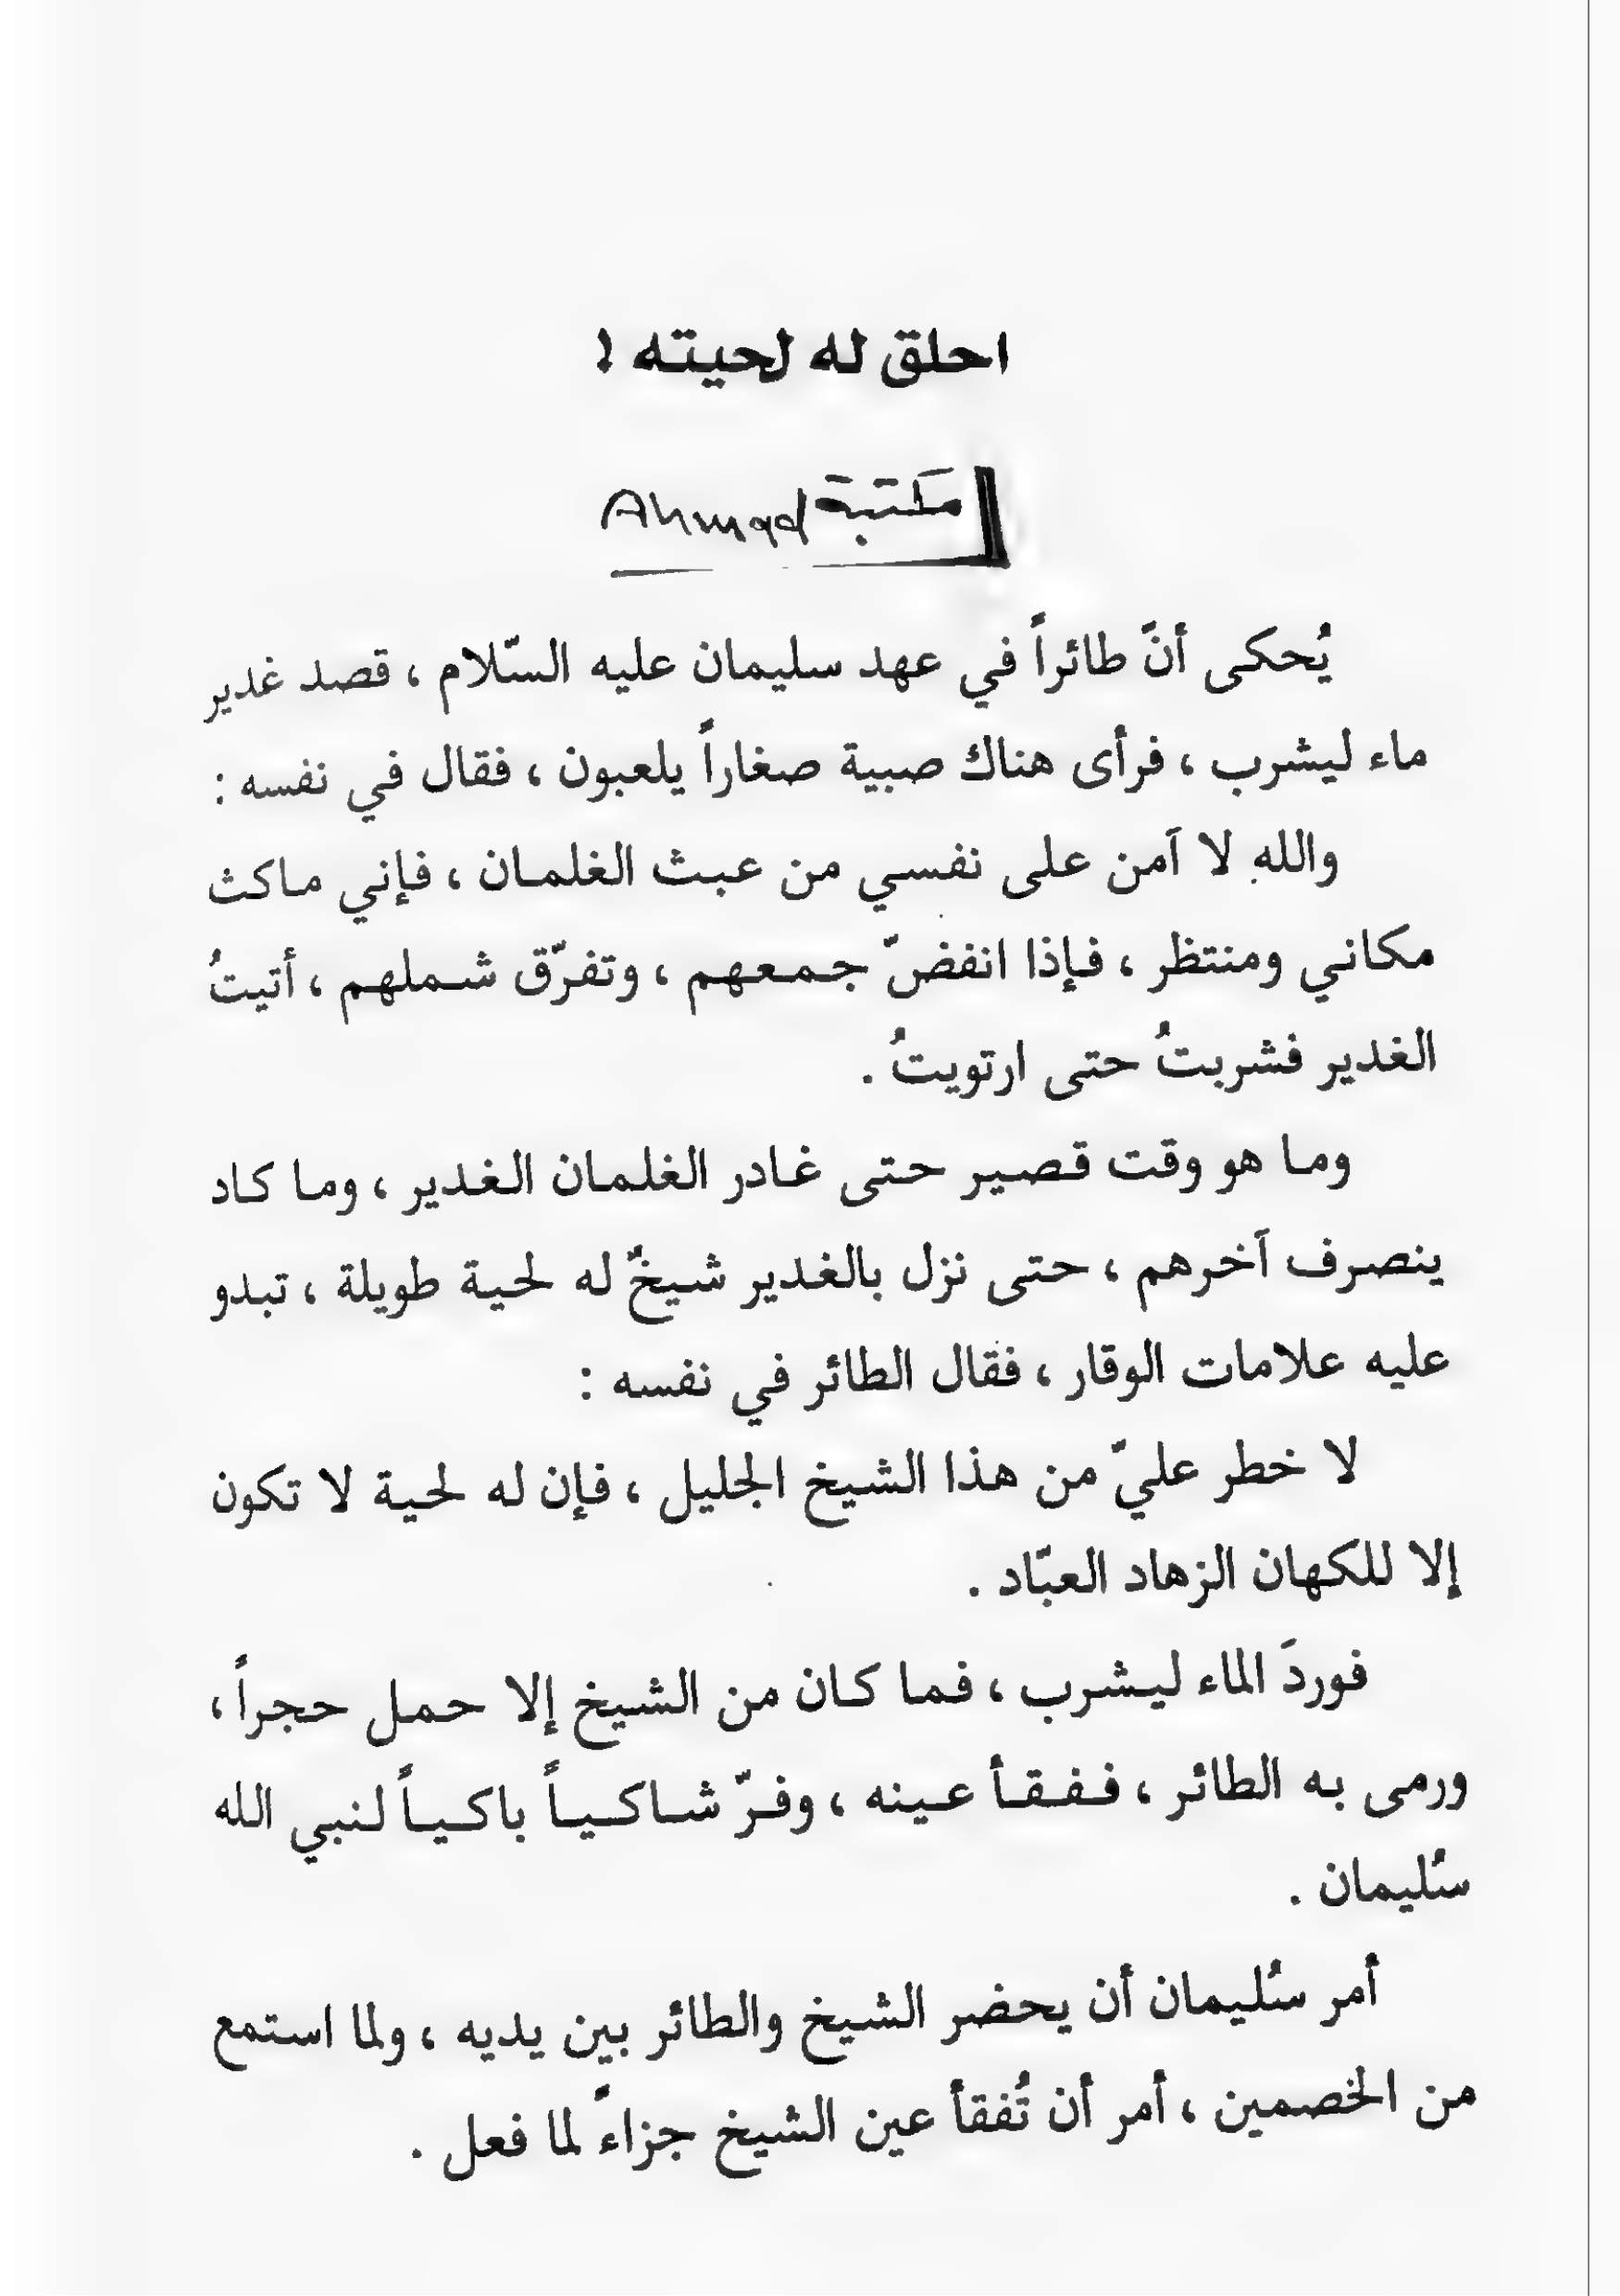 احلق له لحيته !
مكتبة Ahmad
يُحكى أنَّ طائراً في عهد سليمان عليه السّلام ، قصد غدير
ماء ليشرب ، فرأى هناك صبية صغاراً يلعبون ، فقال في نفسه :
واللهِ لا آمن على نفسي من عبث الغلمان ، فإني ماكث
مكاني ومنتظر ، فإذا انفضّ جمعهم ، وتفرّق شملهم ، أتيتُ
الغدير فشربتُ حتى ارتويتُ .
وما هو وقت قصير حتى غادر الغلمان الغدير ، وما كاد
ينصرف آخرهم ، حتى نزل بالغدير شيخٌ له لحية طويلة ، تبدو
عليه علامات الوقار ، فقال الطائر في نفسه :
لا خطر عليّ من هذا الشيخ الجليل ، فإن له لحية لا تكون
إلا للكهان الزهاد العبّاد .
فوردَ الماء ليشرب ، فما كان من الشيخ إلا حمل حجراً ،
ورمى به الطائر ، ففقأ عينه ، وفرّ شاكياً باكياً لنبي الله
سُليمان .
أمر سُليمان أن يحضر الشيخ والطائر بين يديه ، ولما استمع
من الخصمين ، أمر أن تُفقأ عين الشيخ جزاءً لما فعل .